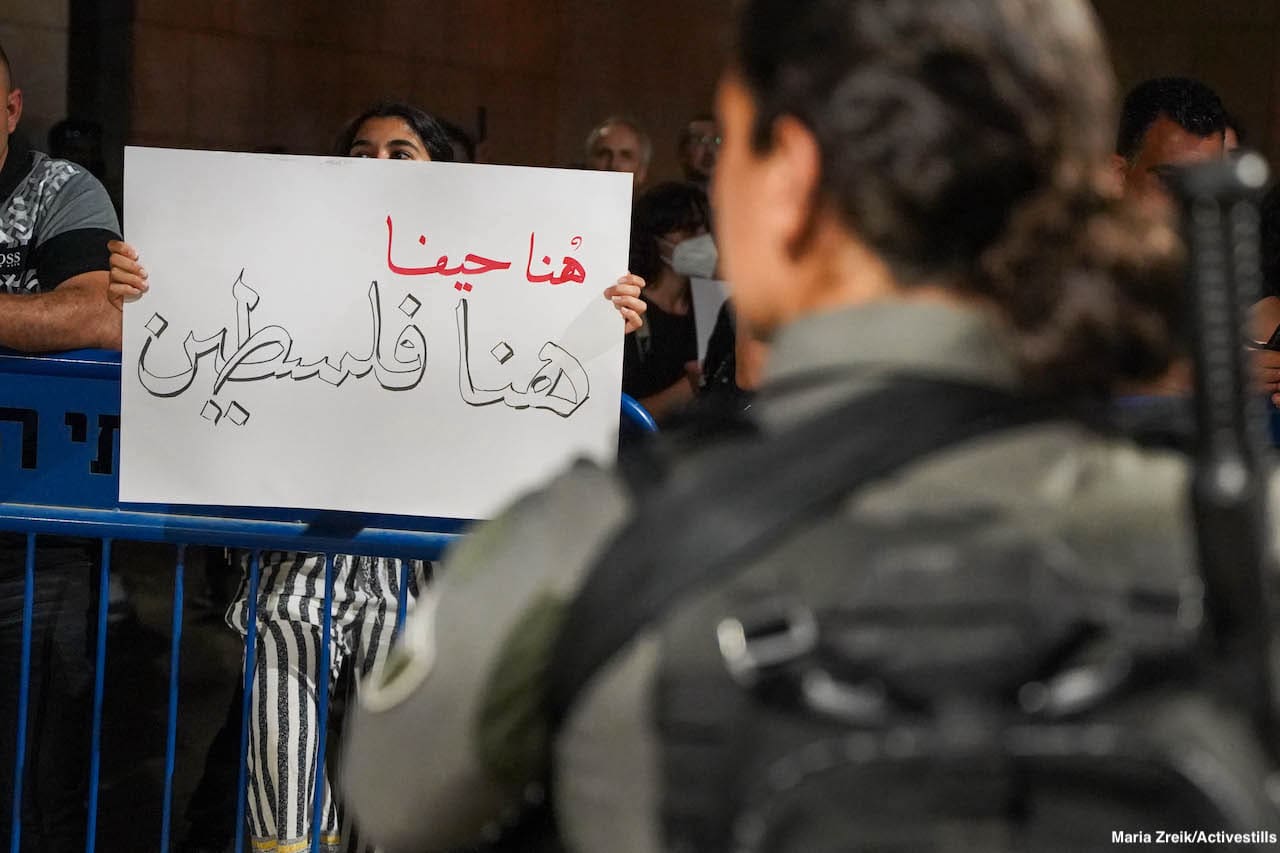 هُنا حيفا
هنا فلسطين
BOSS
Maria Zreik/Activestills